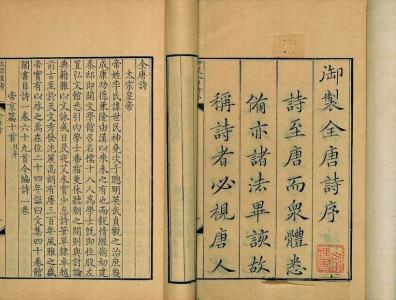 御製全唐詩序
詩至唐而衆體悉
備亦諸法畢該故
稱詩者必視唐人
全唐詩
太宗皇帝
帝姓李氏諱世民神堯次子聰明英武貞觀之治庶幾
成康功德兼隆由漢以來未之有也而銳情經術初建
秦邸即開文學館召名儒十八人為學士既即位殿左
置弘文館悉引內學士番宿更休聽朝之間則與討論
典籍雜以文詠或日昃夜艾未嘗少怠詩筆草隸卓越
前古至於天文秀發沈麗高朗有唐三百年風雅之盛
帝實有以啟之焉在位二十四年諡曰文集四十卷館
閣書目詩一卷六十九首今編詩一卷
帝京篇十首 并序